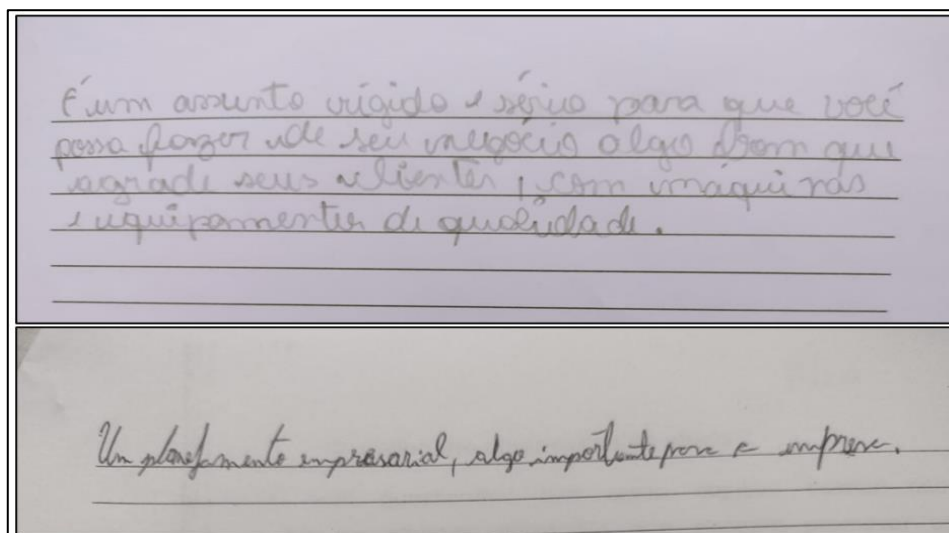 É um assunto rígido e sério para que você
possa fazer de seu negócio algo bom que
agrade seus clientes, com máquinas
e equipamentos de qualidade.
Um planejamento empresarial, algo importante para a empresa.